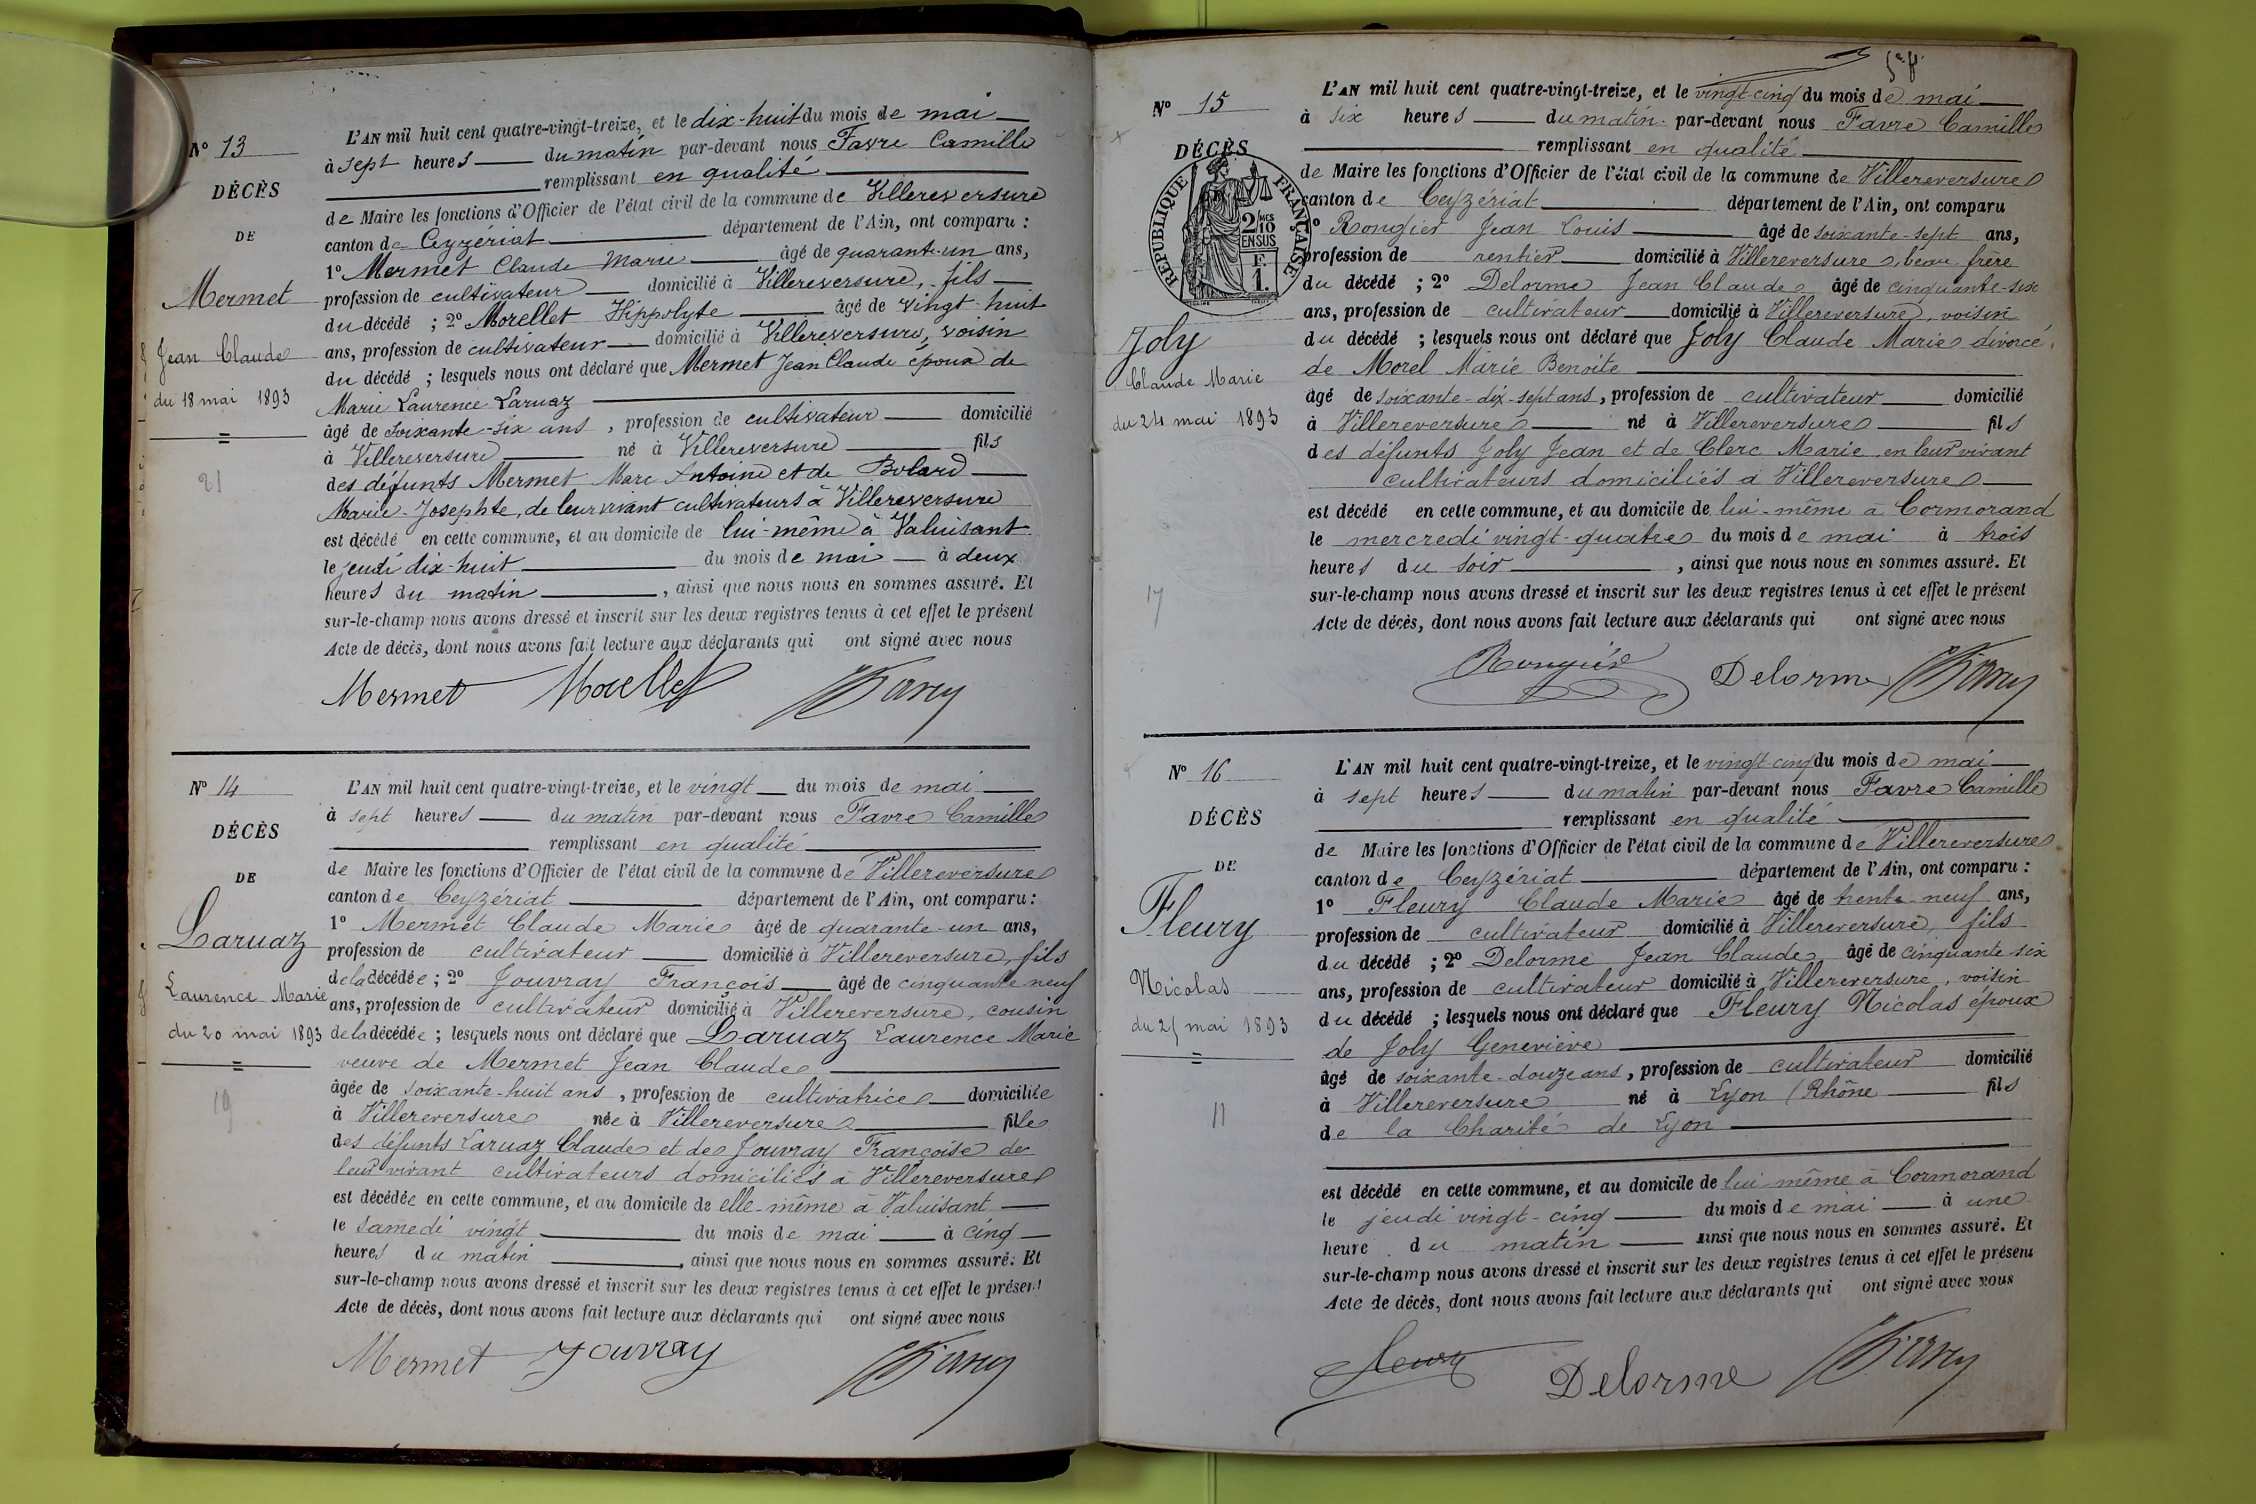 N° 13
DÉCÈS
DE
Mermet
Jean Claude
du 18 mai 1893
21
L'AN mil huit cent quatre-vingt-treize, et le dix-huit du mois de mai
à sept heures du matin par-devant nous Favre Camille
remplissant en qualité
de Maire les fonctions d'Officier de l'état civil de la commune de Villereversure
canton de Ceyzériat département de l'Ain, ont comparu :
1° Mermet Claude Marie âgé de quarante-un ans,
profession de cultivateur domicilié à Villereversure, fils
du décédé ; 2° Morellet Hippolyte âgé de vingt-huit
ans, profession de cultivateur domicilié à Villereversure, voisin
du décédé ; lesquels nous ont déclaré que Mermet Jean Claude époux de
Marie Laurence Laruaz
âgé de soixante-six ans, profession de cultivateur domicilié
à Villereversure né à Villereversure fils
des défunts Mermet Marc Antoine et de Bolard
Marie-Josephte, de leur vivant cultivateurs à Villereversure
est décédé en cette commune, et au domicile de lui-même à Valuisant
le jeudi dix-huit du mois de mai à deux
heures du matin, ainsi que nous nous en sommes assuré. Et
sur-le-champ nous avons dressé et inscrit sur les deux registres tenus à cet effet le présent
Acte de décès, dont nous avons fait lecture aux déclarants qui ont signé avec nous
Mermet Morellet CFavre
N° 14
DÉCÈS
DE
Laruaz
Laurence Marie
du 20 mai 1893
19
L'AN mil huit cent quatre-vingt-treize, et le vingt du mois de mai
à sept heures du matin par-devant nous Favre Camille
remplissant en qualité
de Maire les fonctions d'Officier de l'état civil de la commune de Villereversure
canton de Ceyzériat département de l'Ain, ont comparu :
1° Mermet Claude Marie âgé de quarante-un ans,
profession de cultivateur domicilié à Villereversure, fils
de la décédée ; 2° Jouvray François âgé de cinquante neuf
ans, profession de cultivateur domicilié à Villereversure, cousin
de la décédée ; lesquels nous ont déclaré que Laruaz Laurence Marie
veuve de Mermet Jean Claude
âgée de soixante-huit ans, profession de cultivatrice domiciliée
à Villereversure née à Villereversure fille
des défunts Laruaz Claude et de Jouvray Françoise de
leur vivant cultivateurs domiciliés à Villereversure
est décédée en cette commune, et au domicile de elle-même à Valuisant
le samedi vingt du mois de mai à cinq
heures du matin, ainsi que nous nous en sommes assuré. Et
sur-le-champ nous avons dressé et inscrit sur les deux registres tenus à cet effet le présent
Acte de décès, dont nous avons fait lecture aux déclarants qui ont signé avec nous
Mermet Jouvray CFavre
N° 15
DÉCÈS
RÉPUBLIQUE FRANÇAISE
2 MES
10
EN SUS
F.
1.
Joly
Claude Marie
du 24 mai 1893
17
L'AN mil huit cent quatre-vingt-treize, et le vingt-cinq du mois de mai
à six heures du matin par-devant nous Favre Camille
remplissant en qualité
de Maire les fonctions d'Officier de l'état civil de la commune de Villereversure
canton de Ceyzériat département de l'Ain, ont comparu
1° Rougier Jean Louis âgé de soixante-sept ans,
profession de rentier domicilié à Villereversure, beau frère
du décédé ; 2° Delorme Jean Claude âgé de cinquante-six
ans, profession de cultivateur domicilié à Villereversure, voisin
du décédé ; lesquels nous ont déclaré que Joly Claude Marie divorcé
de Morel Marie Benoite
âgé de soixante-dix-sept ans, profession de cultivateur domicilié
à Villereversure né à Villereversure fils
des défunts Joly Jean et de Clerc Marie en leur vivant
cultivateurs domiciliés à Villereversure
est décédé en cette commune, et au domicile de lui-même à Cormorand
le mercredi vingt-quatre du mois de mai à trois
heures du soir, ainsi que nous nous en sommes assuré. Et
sur-le-champ nous avons dressé et inscrit sur les deux registres tenus à cet effet le présent
Acte de décès, dont nous avons fait lecture aux déclarants qui ont signé avec nous
Rougier Delorme CFavre
N° 16
DÉCÈS
DE
Fleury
Nicolas
du 25 mai 1893
11
L'AN mil huit cent quatre-vingt-treize, et le vingt-cinq du mois de mai
à sept heures du matin par-devant nous Favre Camille
remplissant en qualité
de Maire les fonctions d'Officier de l'état civil de la commune de Villereversure
canton de Ceyzériat département de l'Ain, ont comparu :
1° Fleury Claude Marie âgé de trente-neuf ans,
profession de cultivateur domicilié à Villereversure, fils
du décédé ; 2° Delorme Jean Claude âgé de cinquante six
ans, profession de cultivateur domicilié à Villereversure, voisin
du décédé ; lesquels nous ont déclaré que Fleury Nicolas époux
de Joly Geneviève
âgé de soixante-douze ans, profession de cultivateur domicilié
à Villereversure né à Lyon (Rhône fils
de la Charité de Lyon
est décédé en cette commune, et au domicile de lui même à Cormorand
le jeudi vingt-cinq du mois de mai à une
heure du matin ainsi que nous nous en sommes assuré. Et
sur-le-champ nous avons dressé et inscrit sur les deux registres tenus à cet effet le présent
Acte de décès, dont nous avons fait lecture aux déclarants qui ont signé avec nous
Fleury Delorme CFavre